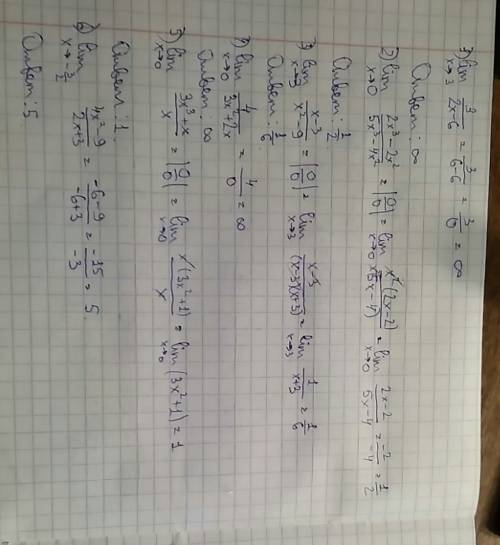 1) lim x→3 3/(2x-6) = 3/(6-6) = 3/0 = ∞
Ответ: ∞
2) lim x→0 (2x³-2x²)/(5x³-4x²) = |0/0| = lim x→0 x²(2x-2)/x²(5x-4) = lim x→0 (2x-2)/(5x-4) = -2/-4 = 1/2
Ответ: 1/2
3) lim x→3 (x-3)/(x²-9) = |0/0| = lim x→3 (x-3)/(x-3)(x+3) = lim x→3 1/(x+3) = 1/6
Ответ: 1/6
4/0 = ∞
Ответ: ∞
5) lim x→0 (3x³+x)/x = |0/0| = lim x→0 x(3x²+1)/x = lim x→0 (3x²+1) = 1
Ответ: 1
6) lim x→-3/2 (4x²-9)/(2x+3) = (-6-9)/(-6+3) = -15/-3 = 5
Ответ: 5